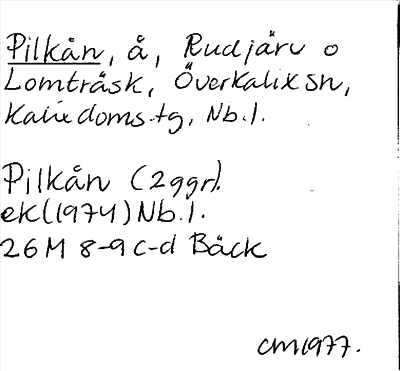 Pilkån, å, Rudjärv o
Lomträsk, Överkalix sn,
Kalix doms.tg, Nb.l.
Pilkån (2ggr).
ek(1974) Nb.l.
26M 8-9 c-d Bäck
CM1977.